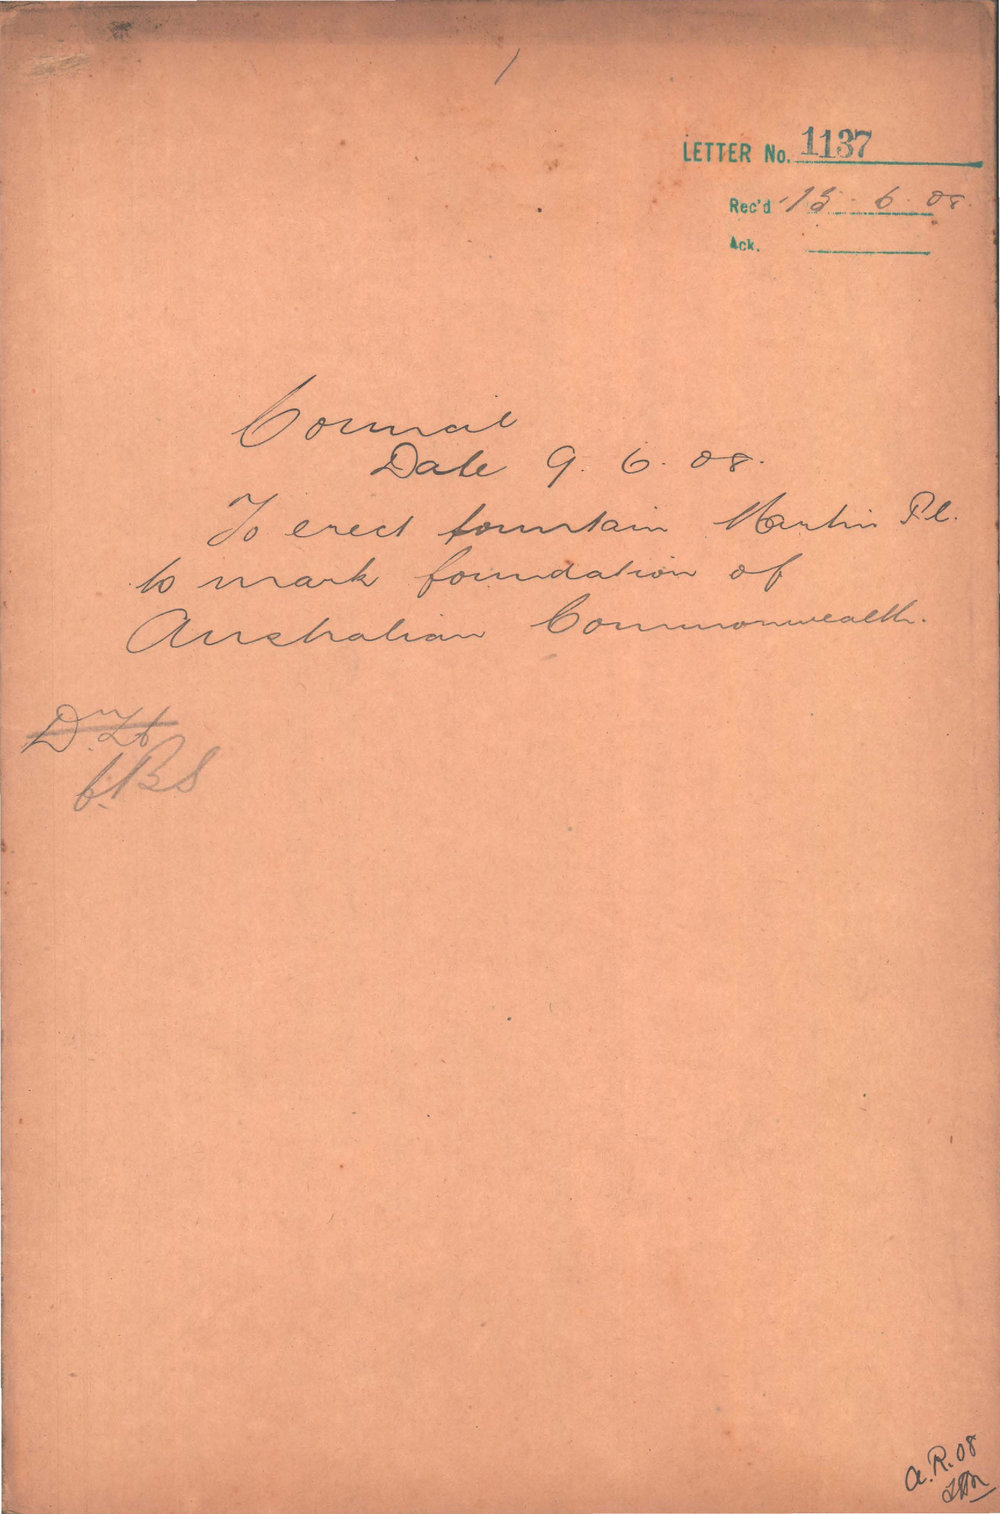 LETTER No. 1137
Rec'd 13. 6. 08.
Ack.
Council
Date 9. 6. 08.
To erect fountain Martin Pl.
to mark foundation of
Australian Commonwealth.
C.B.S
A.R. 08